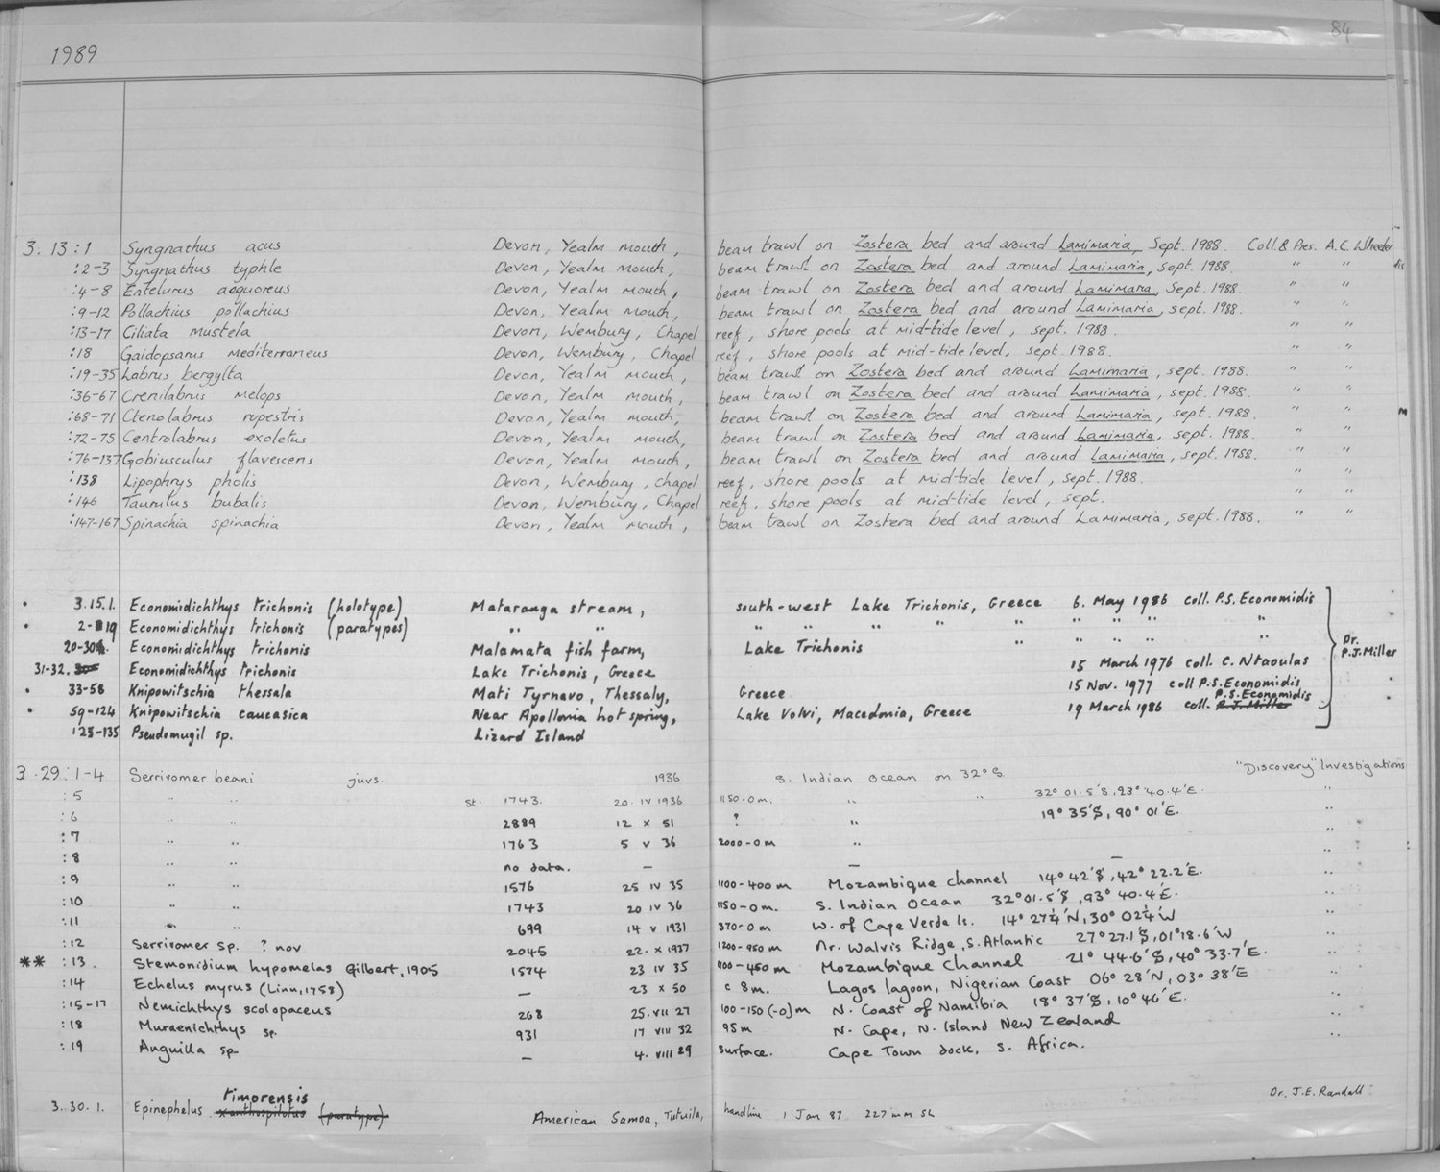 84
1989
3. 13 : 1 Syngnathus acus Devon, Yealm mouth, beam trawl on Zostera bed and around Lamimaria, Sept. 1988. Coll. & Pres. A.C. Wheeler
:2-3 Syngnathus typhle Devon, Yealm mouth, beam trawl on Zostera bed and around Lamimaria, sept. 1988. " "
:4-8 Entelurus aequoreus Devon, Yealm mouth, beam trawl on Zostera bed and around Lamimaria, Sept. 1988. " "
:9-12 Pollachius pollachius Devon, Yealm mouth, beam trawl on Zostera bed and around Lamimaria, sept. 1988. " "
:13-17 Ciliata mustela Devon, Wembury, Chapel reef, shore pools at mid-tide level, sept. 1988. " "
:18 Gaidopsarus mediterraneus Devon, Wembury, Chapel reef, shore pools at mid-tide level, sept. 1988. " "
:19-35 Labrus bergylta Devon, Yealm mouth, beam trawl on Zostera bed and around Lamimaria, sept. 1988. " "
:36-67 Crenilabrus melops Devon, Yealm mouth, beam trawl on Zostera bed and around Lamimaria, sept. 1988. " "
:68-71 Ctenolabrus rupestris Devon, Yealm mouth, beam trawl on Zostera bed and around Lamimaria, sept. 1988. " "
:72-75 Centrolabrus exoletus Devon, Yealm mouth, beam trawl on Zostera bed and around Lamimaria, sept. 1988. " "
:76-137 Gobiusculus flavescens Devon, Yealm mouth, beam trawl on Zostera bed and around Lamimaria, sept. 1988. " "
:138 Lipophrys pholis Devon, Wembury, chapel reef, shore pools at mid-tide level, sept. 1988. " "
:146 Taurulus bubalis Devon, Wembury, Chapel reef, shore pools at mid-tide level, sept. " "
:147-167 Spinachia spinachia Devon, Yealm mouth, beam trawl on Zostera bed and around Lamimaria, sept. 1988. " "
3.15.1. Economidichthys trichonis (holotype) Mataranga stream, south-west Lake Trichonis, Greece 6. May 1986 coll. P.S. Economidis
2-19 Economidichthys trichonis (paratypes) " " " " " " " " " " "
20-30 Economidichthys trichonis Malamata fish farm, Lake Trichonis "
Dr. P.J. Miller
31-32. Economidichthys trichonis Lake Trichonis, Greece 15 March 1976 coll. C. Ntaoulas
33-58 Knipowitschia thessala Mati Tyrnavo, Thessaly, Greece 15 Nov. 1977 coll P.S. Economidis
P.S. Economidis
59-124 Knipowitschia caucasica Near Apollonia hot spring, Lake Volvi, Macedonia, Greece 19 March 1986 coll. P.J. Miller
125-135 Pseudomugil sp. Lizard Island
3. 29 : 1-4 Serrivomer beani juvs. 1936 S. Indian Ocean on 32°S. "Discovery" Investigations
:5 " " St. 1743. 20. IV 1936 1150-0m. " " 32° 01.5'S, 93° 40.4'E. "
:6 " " 2889 12 X 51 ? " 19° 35'S, 90° 01'E.
:7 " " 1763 5 V 36 2000-0m " "
:8 " " no data. — — — "
:9 " " 1576 25 IV 35 1100-400m Mozambique Channel 14° 42'S, 42° 22.2'E. "
:10 " " 1743 20 IV 36 1150-0m. S. Indian Ocean 32° 01.5'S, 93° 40.4'E. "
:11 " " 699 14 V 1931 370-0m W. of Cape Verde Is. 14° 27¼'N, 30° 02¼'W "
:12 Serrivomer sp. ? nov 2045 22. X 1937 1200-950m Nr. Walvis Ridge, S. Atlantic 27° 27.1'S, 01° 18.6'W "
** :13 Stemonidium hypomelas Gilbert, 1905 1574 23 IV 35 900-450m Mozambique Channel 21° 44.6'S, 40° 33.7'E. "
:14 Echelus myrus (Linn, 1758) — 23 X 50 c 8m. Lagos lagoon, Nigerian Coast 06° 28'N, 03° 38'E "
:15-17 Nemichthys scolopaceus 268 25. VII 27 100-150 (-0)m N. Coast of Namibia 18° 37'S, 10° 46'E. "
:18 Muraenichthys sp. 931 17 VIII 32 95m N. Cape, N. Island New Zealand "
:19 Anguilla sp. — 4. VIII 29 surface. Cape Town dock, S. Africa. "
timorensis
Dr. J.E. Randall
3.30.1. Epinephelus xanthospilotus (paratype) American Samoa, Tutuila, handline 1 Jan 87 227mm SL